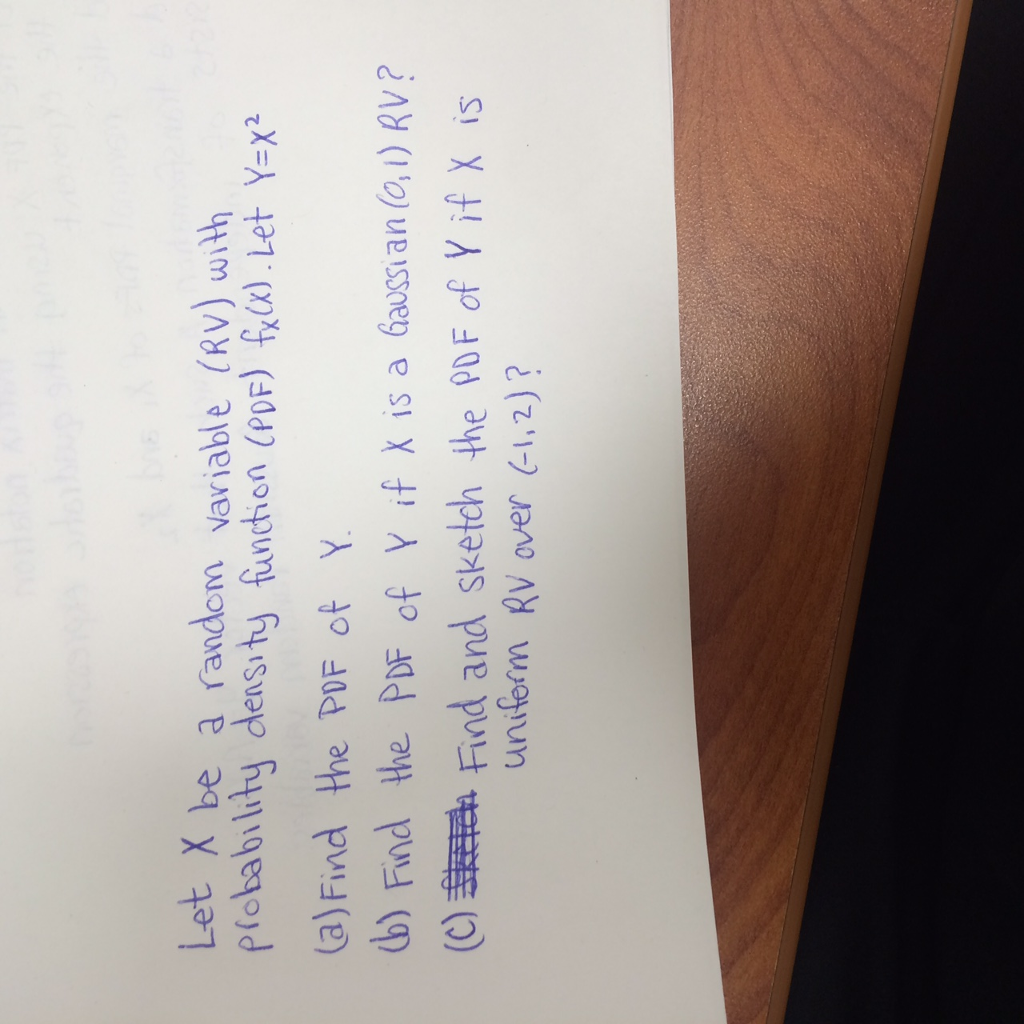 Let X be a random variable (RV) with
probability density function (PDF) fx(x). Let Y=X²
(a) Find the PDF of Y.
(b) Find the PDF of Y if X is a Gaussian(0,1) RV?
(c) Find and sketch the PDF of Y if X is
uniform RV over (-1,2)?